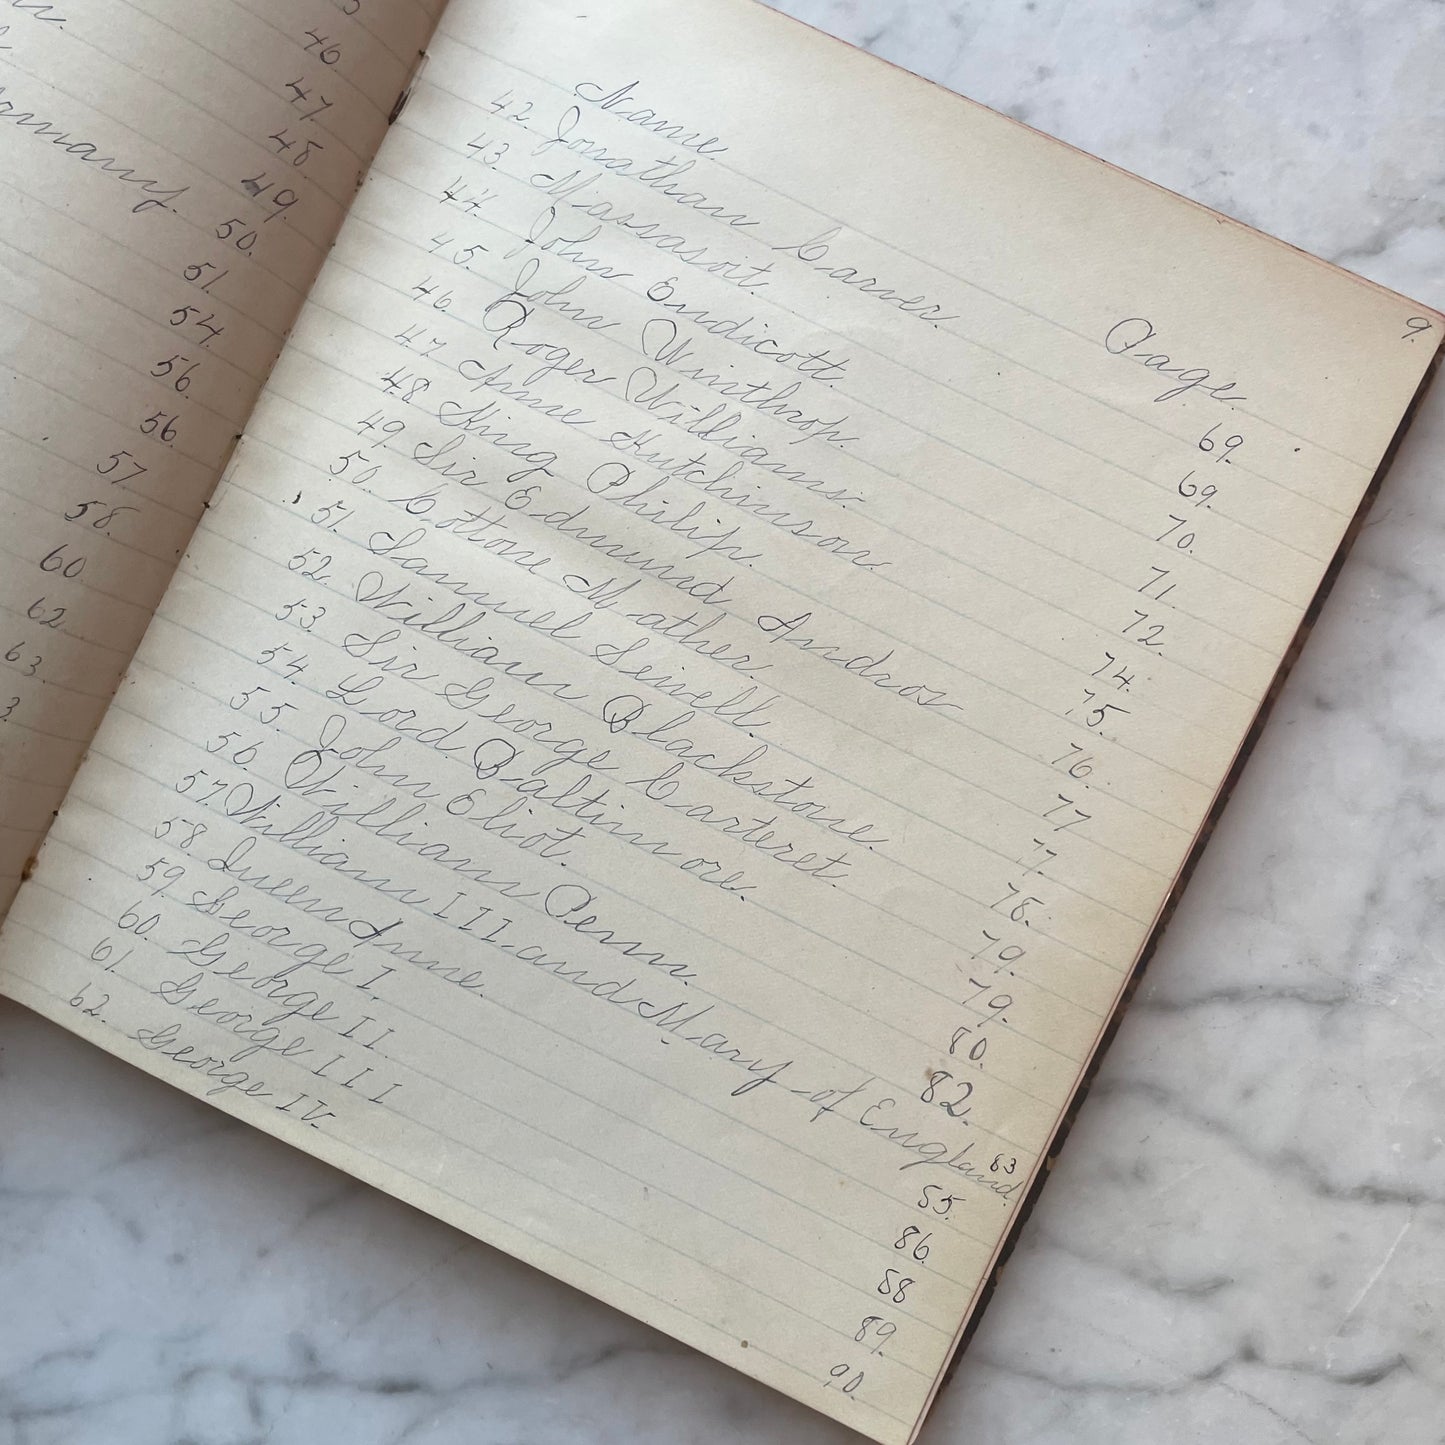 46
47
48
49.
50.
rmany.
51.
54.
56.
56
57
58.
60
62
63.
3.
9.
Name Page.
42. Jonathan Carver. 69.
43. Massasoit. 69.
44. John Endicott. 70.
45. John Winthrop. 71.
46. Roger Williams. 72.
47. Anne Hutchinson. 74.
48. King Philip. 75.
49. Sir Edmund Andros 76.
50. Cotton Mather. 77
51. Samuel Sewell. 77.
52. William Blackstone. 78.
53. Sir George Carteret. 79.
54. Lord Baltimore. 79.
55. John Eliot. 80.
56. William Penn. 82.
57. William III. and Mary of England. 83
58. Queen Anne. 85.
59. George I. 86.
60. George II. 88
61. George III 89.
62. George IV. 90.